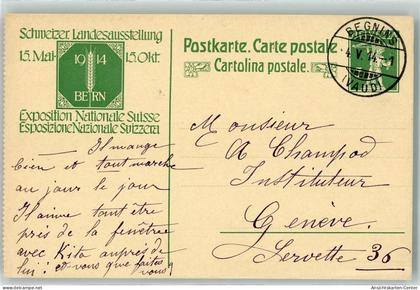 Schweizer Landesausstellung
15. Mai 15. Okt.
19 14
BERN
Exposition Nationale Suisse
Esposizione Nazionale Svizzera
Postkarte. Carte postale
Cartolina postale.
BEGNINS
4. V. 14
(VAUD)
Il mange
bien et tout marche
au jour le jour
Il aime tout être
près de la fenêtre
avec Kita auprès de
lui! et vous que faites
vous?
Monsieur
A Champod
Instituteur
Genève.
Servette 36
oldthing